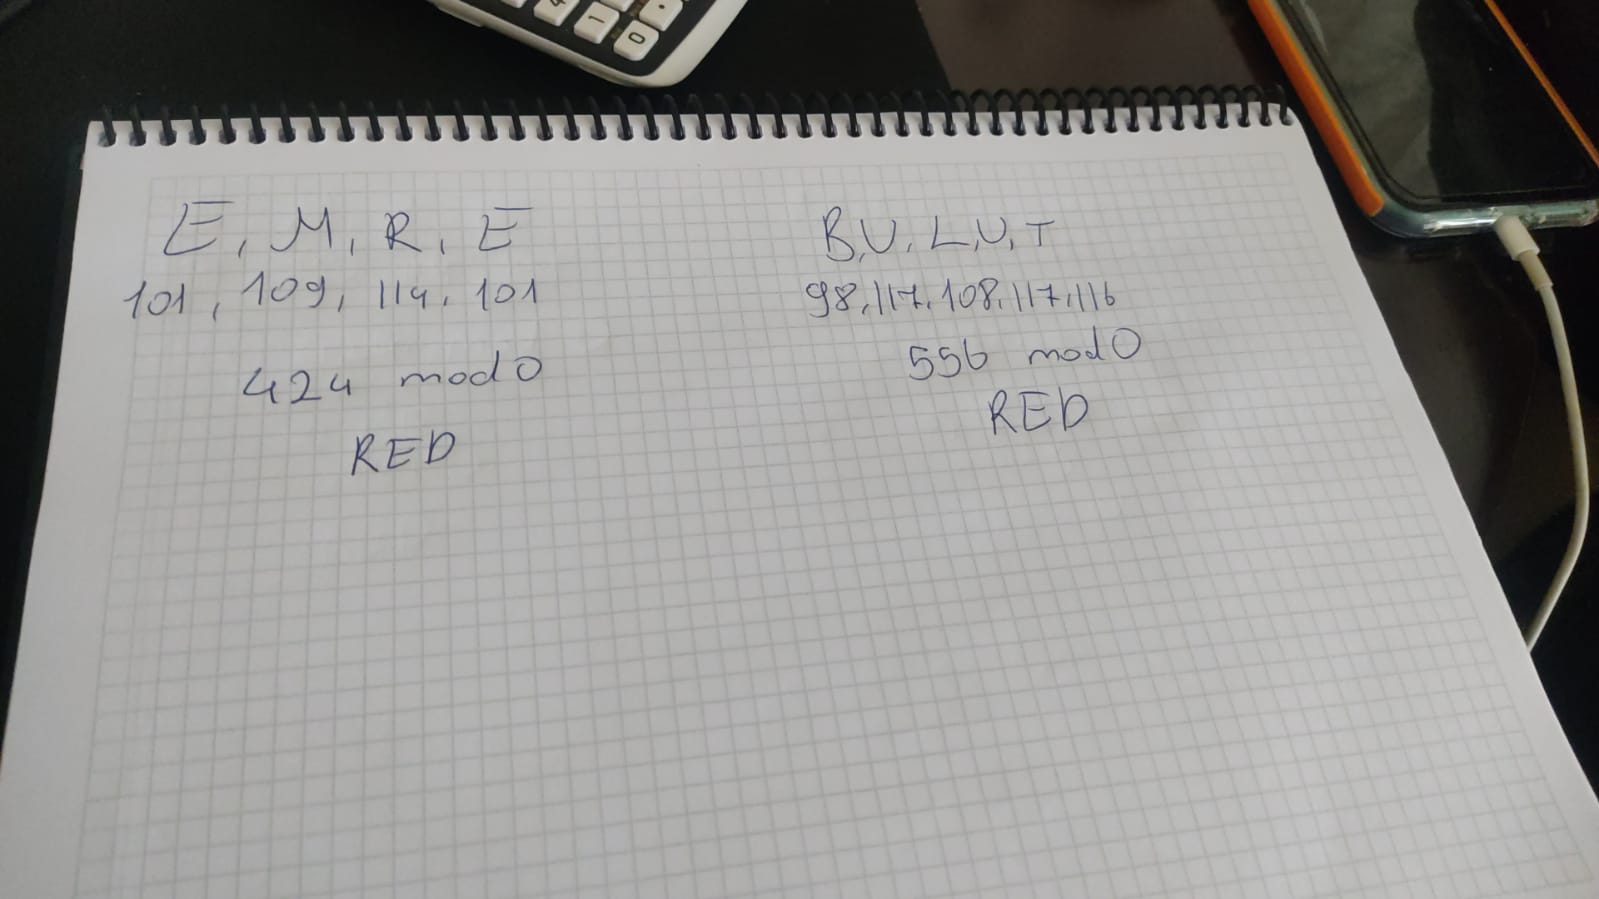 E, M, R, E
101, 109, 114, 101
424 mod 0
RED
B, U, L, U, T
98, 117, 108, 117, 116
556 mod 0
RED
4
1
.
0